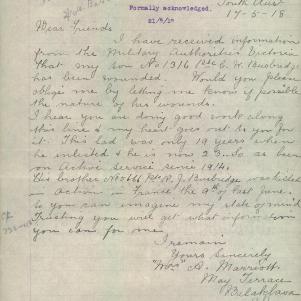 South Aus
Formally acknowledged.
21/5/18
17-5-18
Dear Friends
I have received information
from the Military Authorities Victoria
that my son No 1316 Pte C. H. Bainbridge
has been wounded. Would you please
oblige me by letting me know if possible
the nature of his wounds.
I hear you are doing good work along
this line & my heart goes out to you for
it. This lad was only 19 years when
he enlisted & he is now 23. So as been
on Active Service since 1914.
His brother Pte J. Bainbridge was killed
in action in France the 9th of last June.
So you can imagine my state of mind
Trusting you will get what information
you can for me.
I remain
Yours Sincerely
"Mrs" A. Marriott.
May Terrace
Balaklava